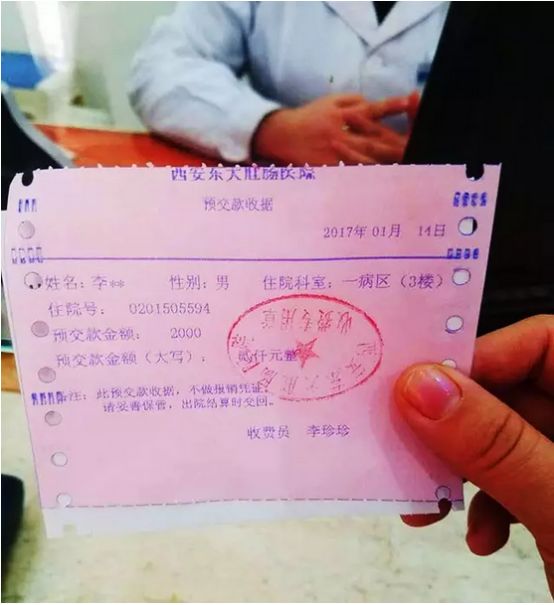 西安东大肛肠医院
预交款收据
2017年01月 14日
姓名：李** 性别：男 住院科室：一病区（3楼）
住院号： 0201505594
预交款金额： 2000
预交款金额（大写）： 贰仟元整
备注： 此预交款收据，不做报销凭证，
请妥善保管，出院结算时交回。
收费员 李珍珍
收费专用章